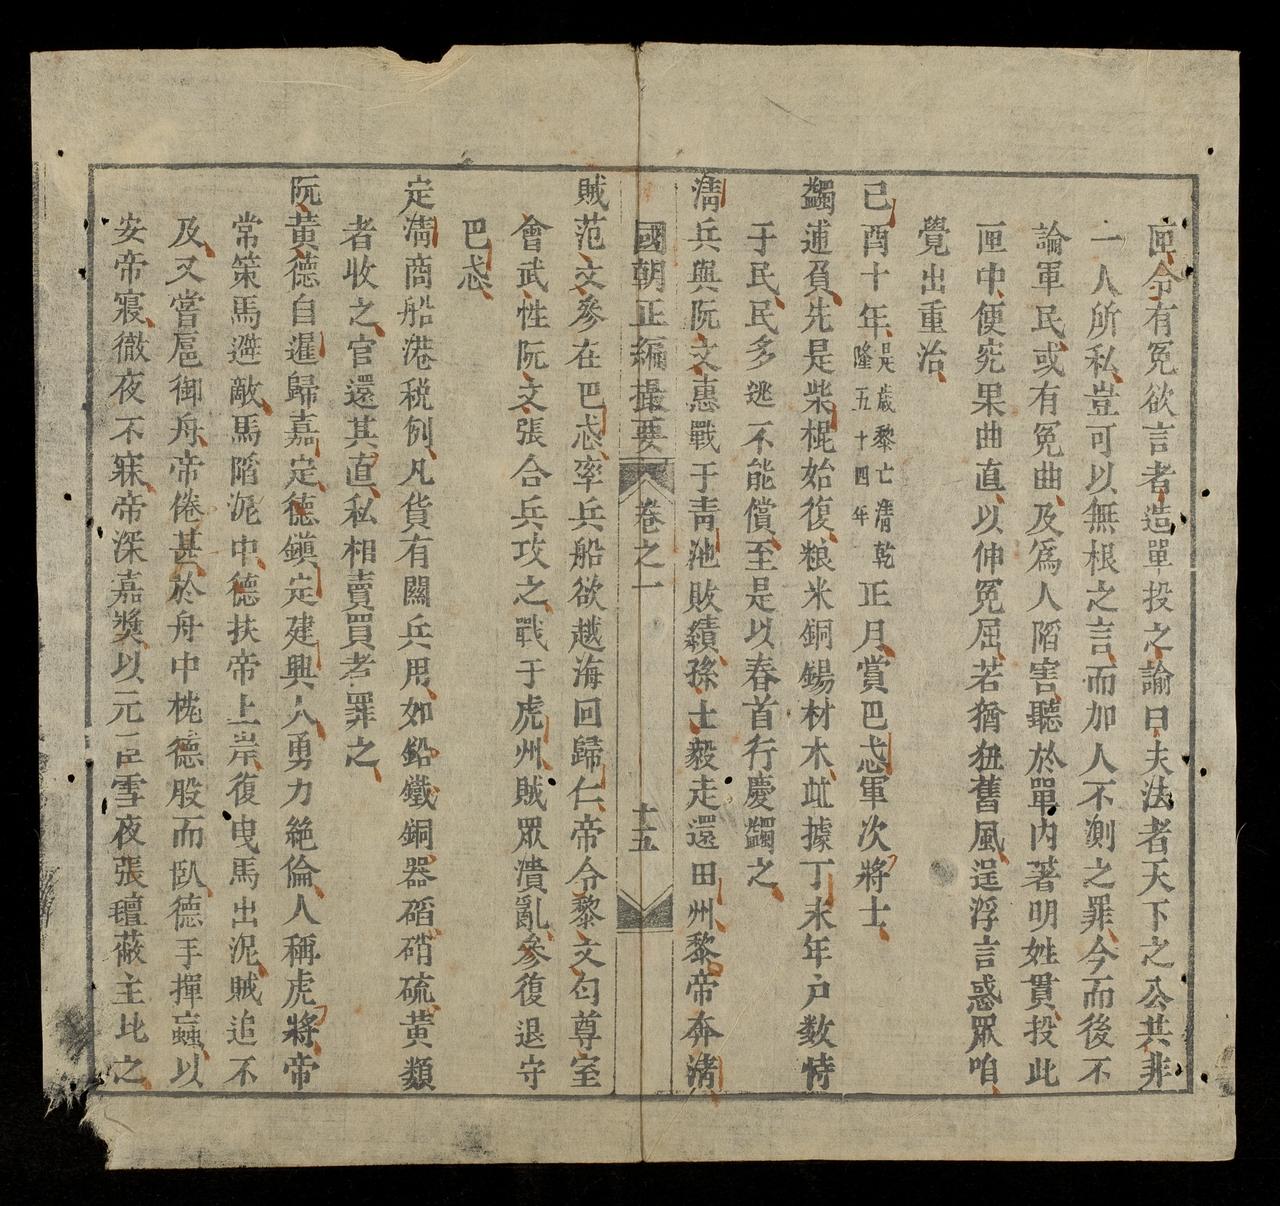 匣令有冤欲言者造單投之諭曰夫法者天下之公共非
一人所私豈可以無根之言而加人不測之罪今而後不
論軍民或有冤曲及爲人陷害聽於單内著明姓貫投此
匣中使究果曲直以伸冤屈若猶狃舊風逞浮言惑眾咱
覺出重治
己酉十年是歲黎亡清乾隆五十四年正月賞巴忒軍次將士
蠲逋負先是柴棍始復粮米銅錫材木並據丁未年户数恃
于民民多逃不能償至是以春首行慶蠲之
清兵與阮文惠戰于青池敗績孫士毅走還田州黎帝奔清
國朝正編撮要 卷之一 十五
賊范文參在巴忒率兵船欲越海回歸仁帝令黎文匀尊室
會武性阮文張合兵攻之戰于虎州賊眾潰亂參復退守
巴忒
定清商船港税例凡貨有關兵用如鉛鐵銅器磘硝硫黃類
者收之官還其直私相賣買者罪之
阮黃德自暹歸嘉定德鎭定建興人勇力絶倫人稱虎將帝
常策馬避敵馬陷泥中德扶帝上岸復曳馬出泥賊追不
及又嘗扈御舟帝倦甚於舟中枕德股而臥德手揮蟁以
安帝寢徹夜不寐帝深嘉獎以元臣雪夜張氊蔽主比之